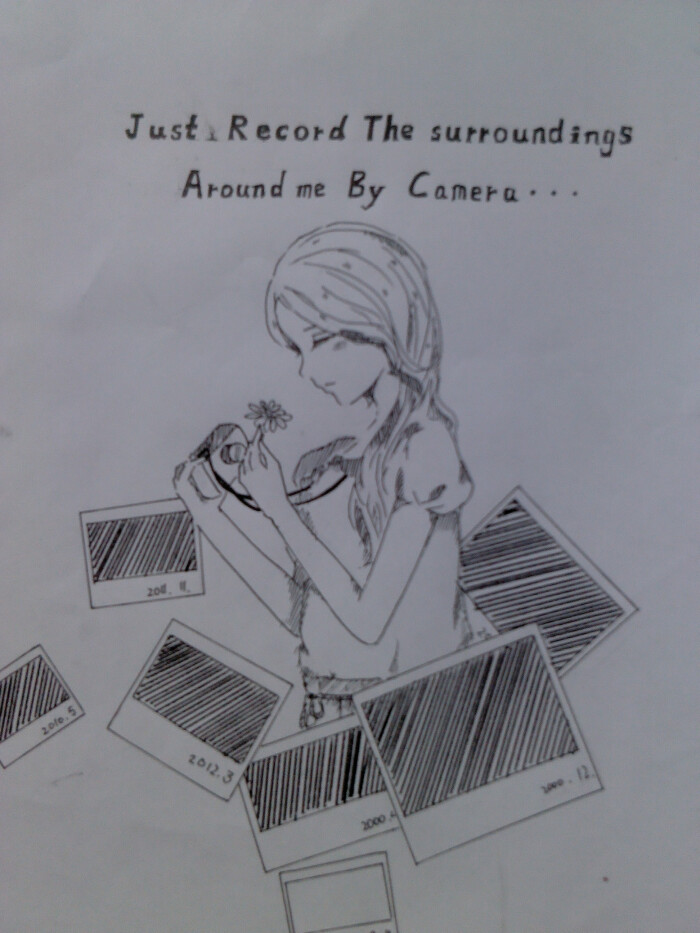 Just Record The surroundings
Around me By Camera...
2011. 11.
2010.5
2012.3
2000.
2000. 12.